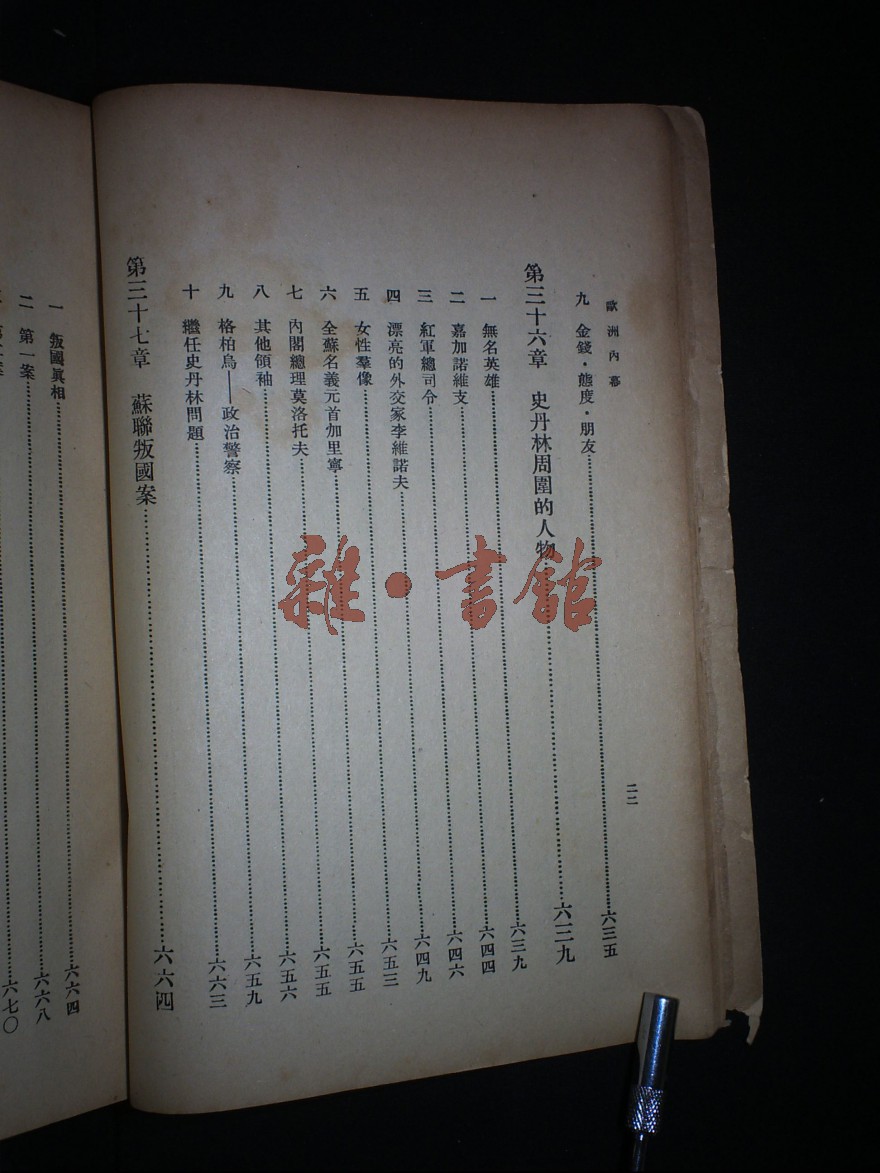 歐洲內幕
二二
九 金錢・態度・朋友……六三五
第三十六章 史丹林周圍的人物……六三九
一 無名英雄……六三九
二 嘉加諾維支……六四四
三 紅軍總司令……六四六
四 漂亮的外交家李維諾夫……六四九
五 女性羣像……六五三
六 全蘇名義元首加里寧……六五五
七 內閣總理莫洛托夫……六五五
八 其他領袖……六五六
九 格柏烏——政治警察……六五九
十 繼任史丹林問題……六六三
第三十七章 蘇聯叛國案……六六四
一 叛國眞相……六六四
二 第一案……六六八
六七〇
雜・書館